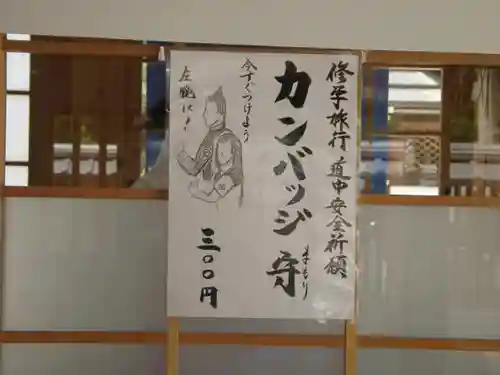 修学旅行 道中安全祈願
カンバッジ守
まもり
今すぐつけよう
左腕に！
三〇〇円